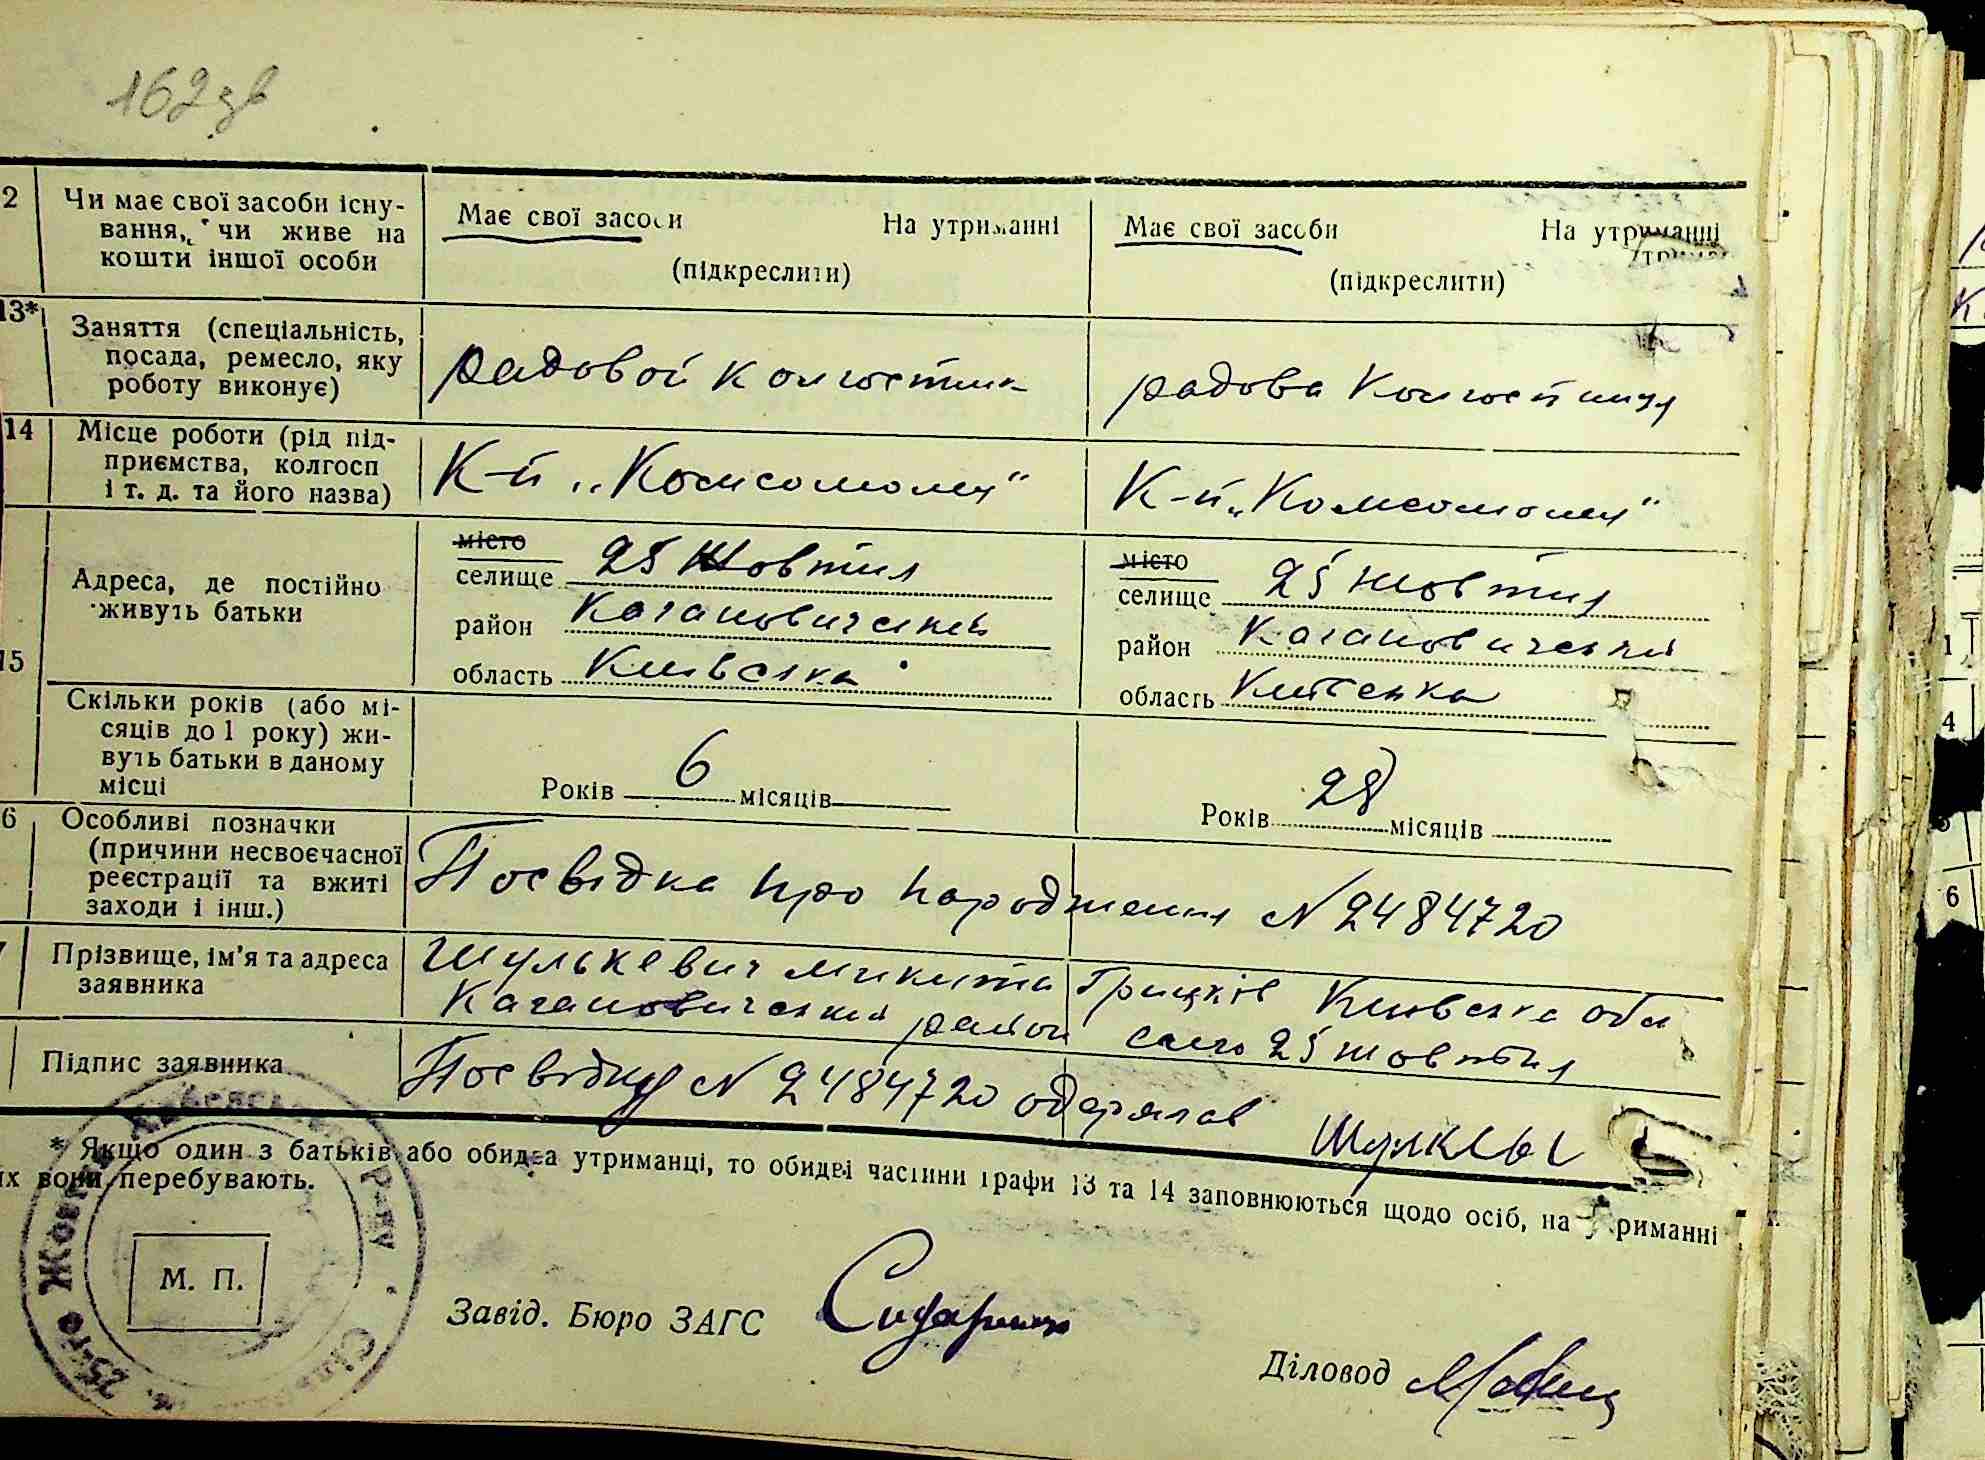 162зв
2 Чи має свої засоби існу-
вання, чи живе на
кошти іншої особи
Має свої засоби На утриманні
(підкреслити)
Має свої засоби На утриманні
(підкреслити)
13* Заняття (спеціальність,
посада, ремесло, яку
роботу виконує)
радовой колгостник
радова колгостниця
14 Місце роботи (рід під-
приємства, колгосп
і т. д. та його назва)
К-п „Комсомолец"
К-п „Комсомолец"
15 Адреса, де постійно
живуть батьки
місто
селище 25 Жовтня
район Кагановичский
область Київська
місто
селище 25 жовтня
район Кагановичський
область Київська
Скільки років (або мі-
сяців до 1 року) жи-
вуть батьки в даному
місці
Років 6 місяців
Років 28 місяців
6 Особливі позначки
(причини несвоєчасної
реєстрації та вжиті
заходи і інш.)
Посвідка про народження N 2484720
Прізвище, ім'я та адреса
заявника
Шулькевич Микита Грицьків Київська обл
Кагановичський район село 25 жовтня
Підпис заявника
Посвідку N 2484720 одержав
* Якщо один з батьків або обидва утриманці, то обидві частини графи 13 та 14 заповнюються щодо осіб, на утриманні
их вони перебувають.
М. П.
25-го Жовтня
Р-ну
Завід. Бюро ЗАГС
Діловод